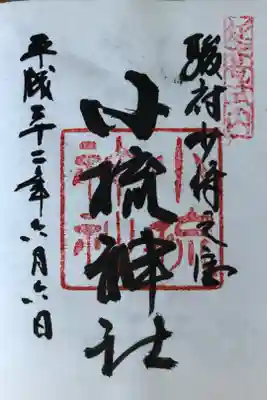 駿府少将之宮
小梳神社
平成
年六月六日